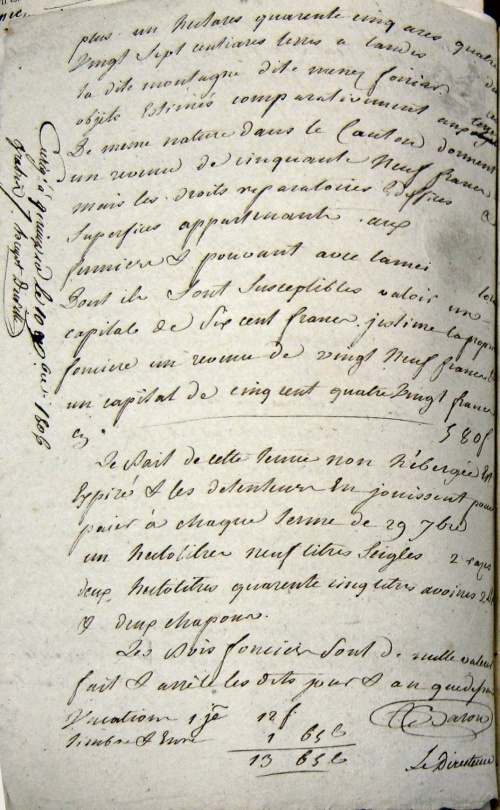 plus un hectares quarente cinq ares quatre
Vingt Sept centiares terres a landes
la dite montagne dite menez
objets Estimés comparativement aux
De meme nature dans le Canton donnent
un revenu de cinquante Neuf francs
mais les droits reparatoires Edifices &
Superfices appartenants aux
fermiers & pouvant avec
Dont ils Sont Susceptibles valoir un
capitale de Six cent francs. jestime la
fonciere un revenu de vingt Neuf francs
un capital de cinq cent quatre Vingt francs
cy. 580f
Le Bail de cette tenue non hébergée Est
Expiré & les detenteurs En jouissent pour
paier à chaque terme de 29 7bre
un hectolitre neuf litres Seigles 2
deux hectolitres quarente cinq litres avoines
& deux chapons.
Les Bois fonciers Sont de nulle valeur
fait & arrêté les dits jour & an que
Vacation 1 je 12 f
Timbre & 1 65 c
13 65 c
Le Directeur
à le 10 1806